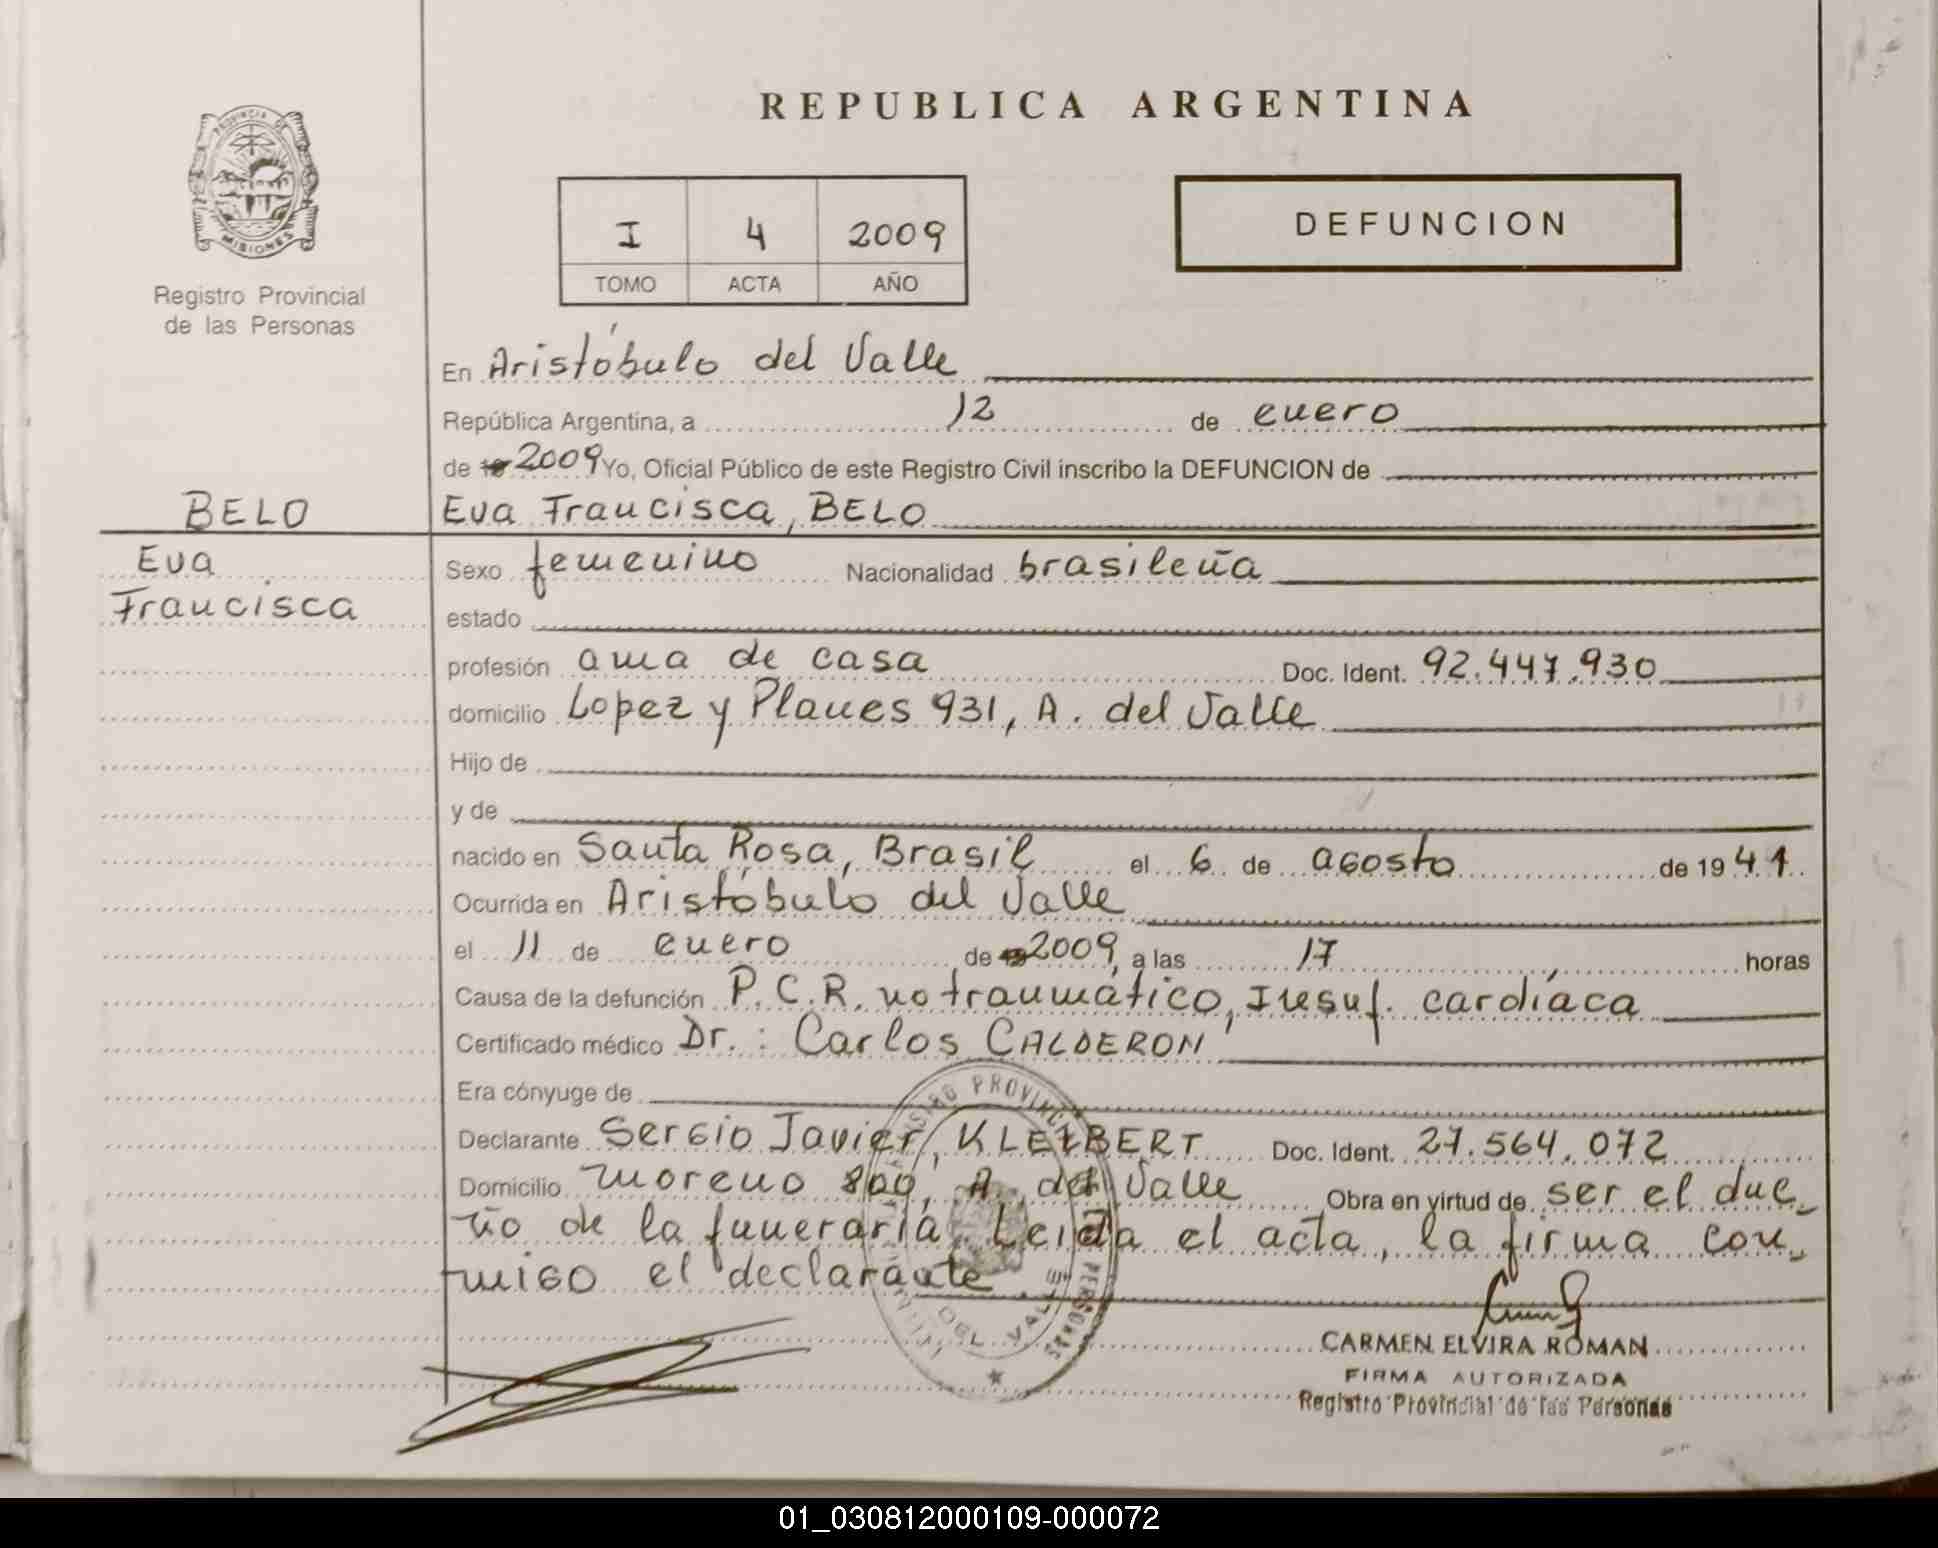 REPUBLICA ARGENTINA
PROVINCIA DE
MISIONES
Registro Provincial
de las Personas
I 4 2009
TOMO ACTA AÑO
DEFUNCION
En Aristóbulo del Valle
República Argentina, a 12 de enero
de 2009 Yo, Oficial Público de este Registro Civil inscribo la DEFUNCION de
BELO Eva Francisca, BELO
Eva Sexo femenino Nacionalidad brasileña
Francisca estado
profesión ama de casa Doc. Ident. 92.447.930
domicilio Lopez y Planes 931, A. del Valle
Hijo de
y de
nacido en Santa Rosa, Brasil el 6 de agosto de 1941
Ocurrida en Aristóbulo del Valle
el 11 de enero de 2009, a las 17 horas
Causa de la defunción P.C.R. no traumático, Insuf. cardíaca
Certificado médico Dr.: Carlos CALDERON
Era cónyuge de
Declarante Sergio Javier, KLEIBERT Doc. Ident. 27.564.072
Domicilio Moreno 800, A. del Valle Obra en virtud de ser el due-
ño de la funeraria Leida el acta, la firma con-
migo el declarante.
DEL VALLE
CARMEN ELVIRA ROMAN
FIRMA AUTORIZADA
Registro Provincial de las Personas
01_030812000109-000072